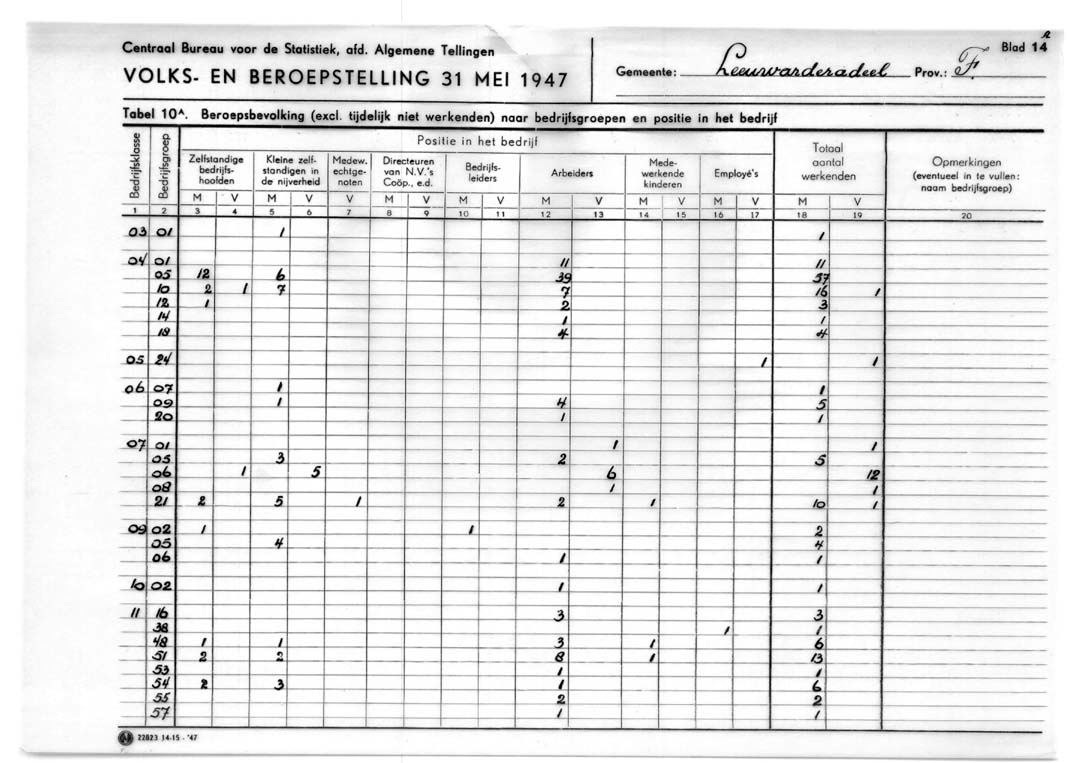 R
Centraal Bureau voor de Statistiek, afd. Algemene Tellingen
VOLKS- EN BEROEPSTELLING 31 MEI 1947
Gemeente: Leeuwarderadeel Prov.: F. Blad 14
Tabel 10A. Beroepsbevolking (excl. tijdelijk niet werkenden) naar bedrijfsgroepen en positie in het bedrijf
Bedrijfsklasse Bedrijfsgroep Positie in het bedrijf Totaal aantal werkenden Opmerkingen (eventueel in te vullen: naam bedrijfsgroep)
Zelfstandige bedrijfs- hoofden Kleine zelf- standigen in de nijverheid Medew. echtge- noten Directeuren van N.V.'s Coöp., e.d. Bedrijfs- leiders Arbeiders Mede- werkende kinderen Employé's
M V M V V M V M V M V M V M V M V
1 2 3 4 5 6 7 8 9 10 11 12 13 14 15 16 17 18 19 20
03 01 1 1
04 01 11 11
05 12 6 39 57
10 2 1 7 7 16 1
12 1 2 3
14 1 1
18 4 4
05 24 1 1
06 07 1 1
09 1 4 5
20 1 1
07 01 1 1
05 3 2 5
06 1 5 6 12
08 1 1
21 2 5 1 2 1 10 1
09 02 1 1 2
05 4 4
06 1 1
10 02 1 1
11 16 3 3
38 1 1
48 1 1 3 1 6
51 2 2 8 1 13
53 1 1
54 2 3 1 6
55 2 2
57 1 1
22823 14-15 - '47